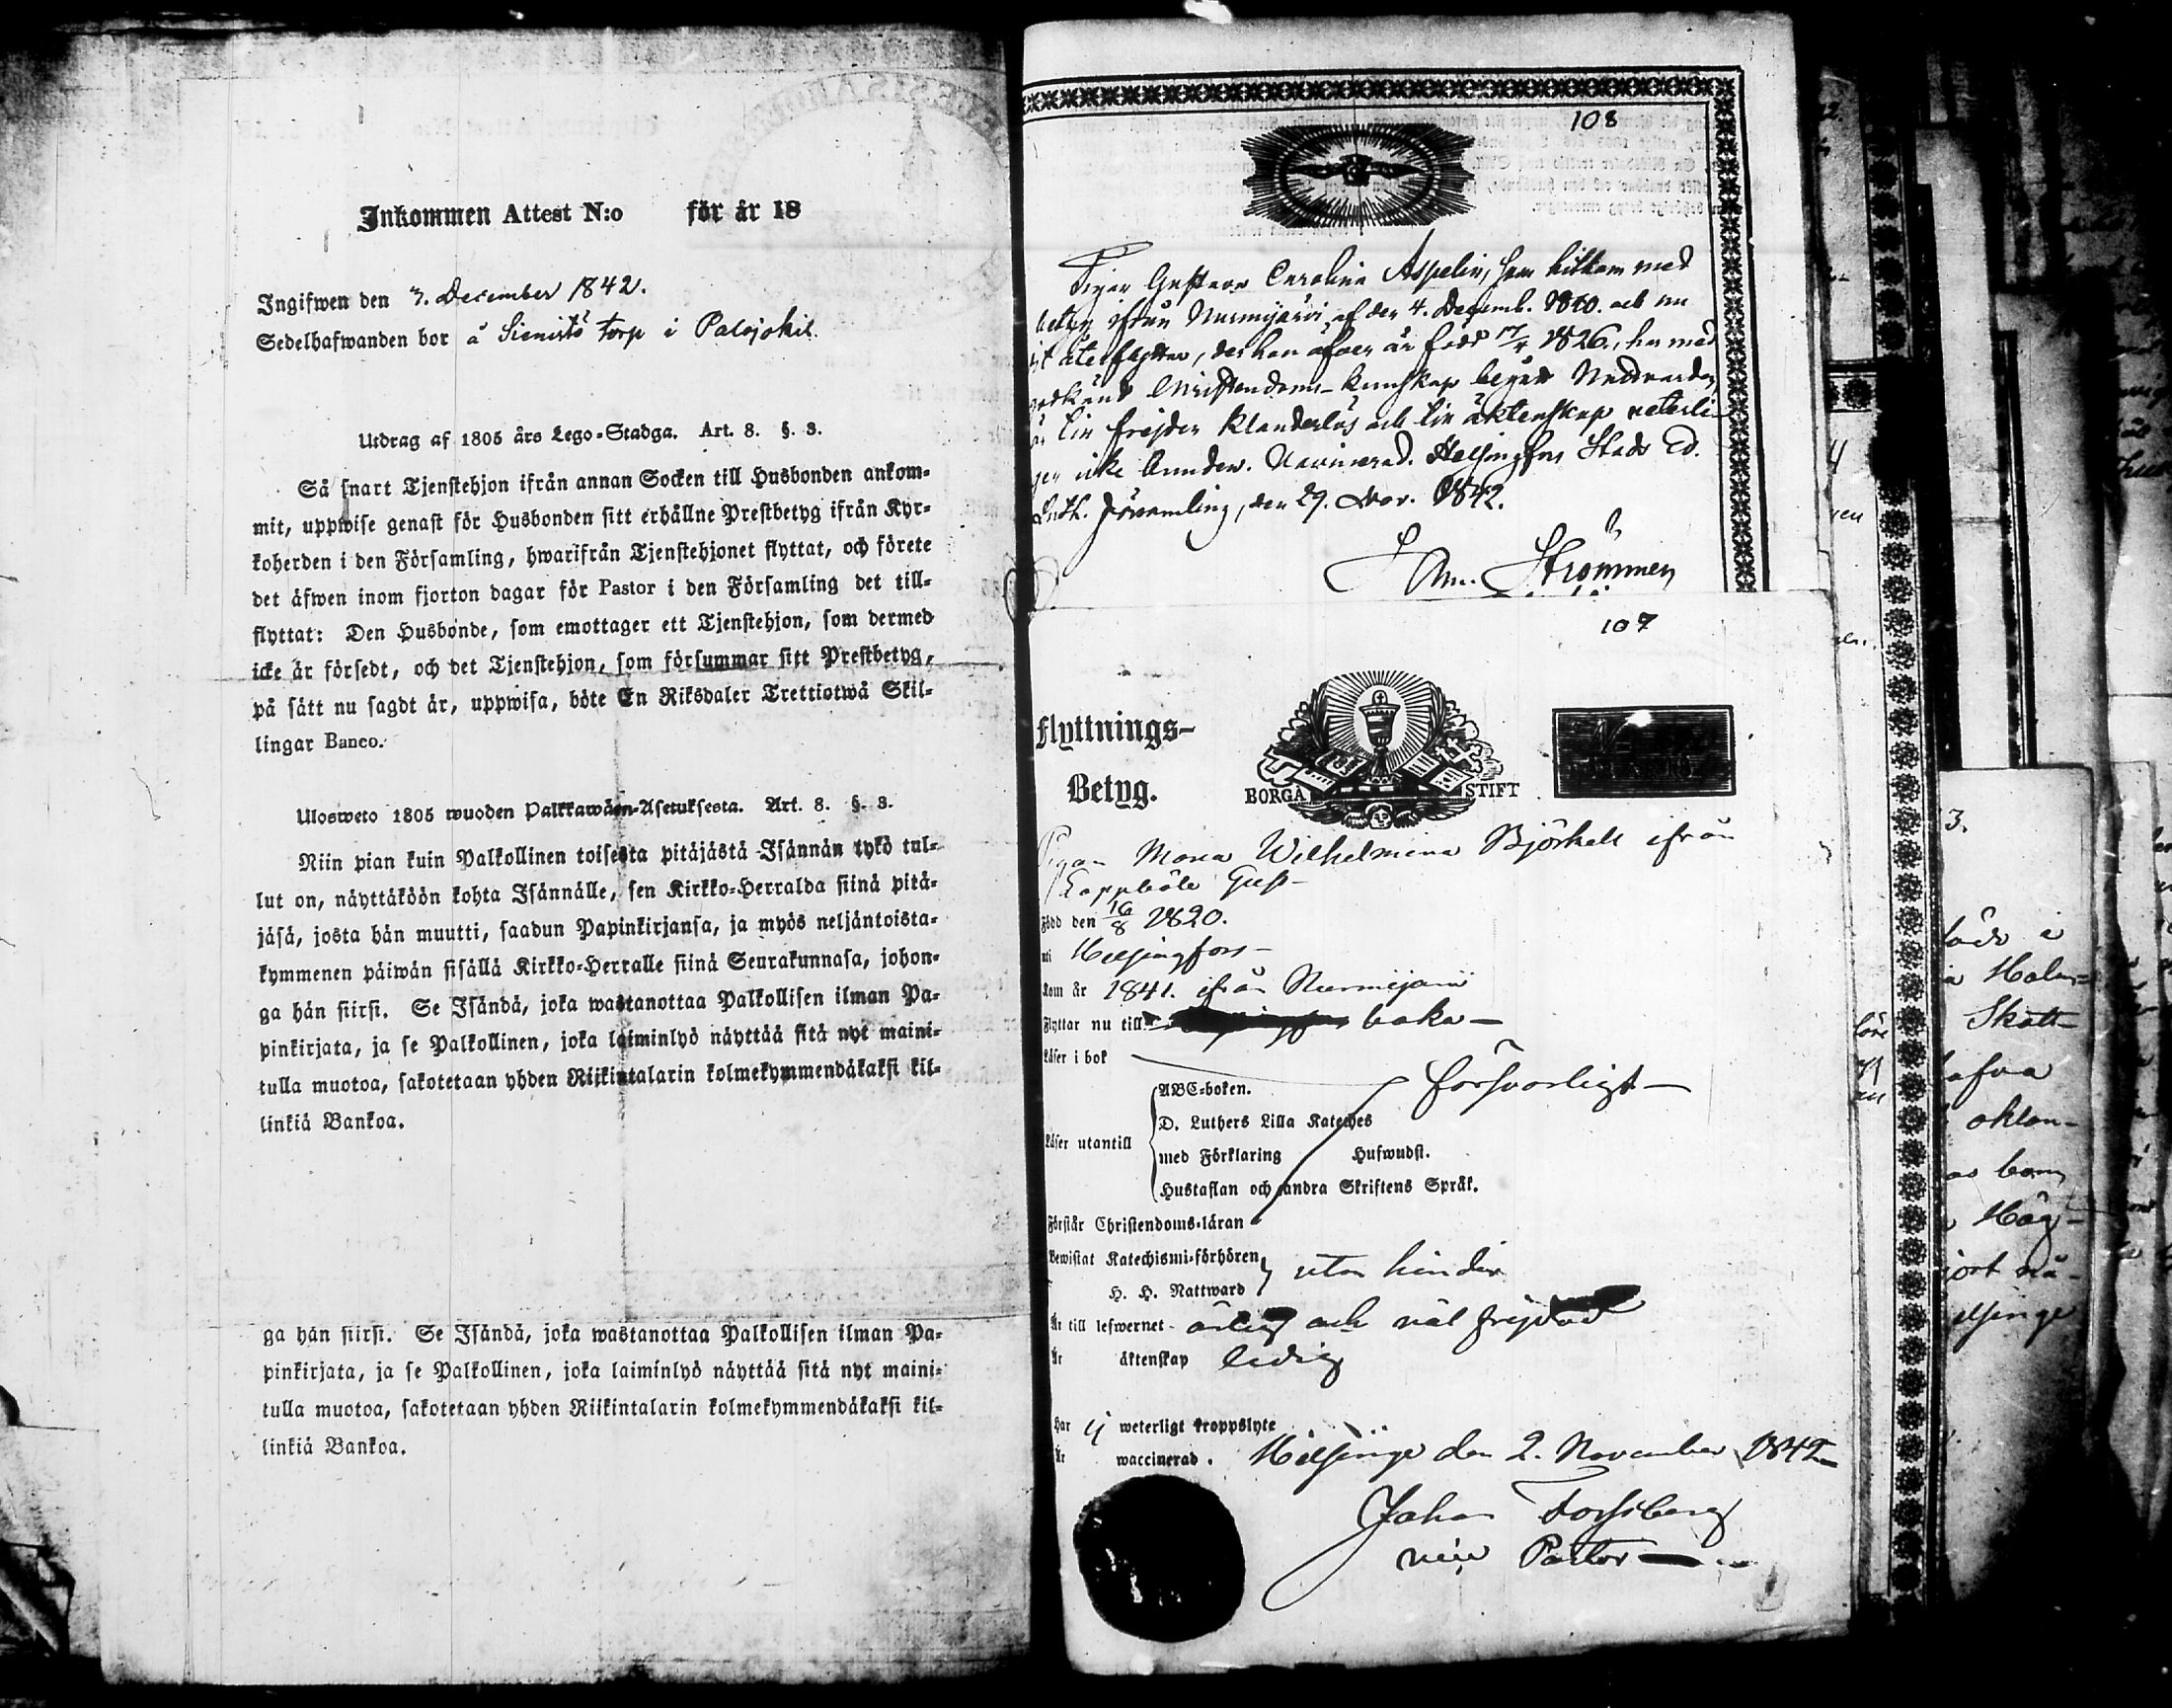 Inkommen Attest N:o för år 18
Ingifwen den 3. December 1842.
Sedelhafwanden bor å Sienistö torp i Palojoki.
Utdrag af 1805 års Lego-Stadga. Art. 8. §. 3.
Så snart Tjenstehjon ifrån annan Socken till Husbonden ankom-
mit, uppwise genast för Husbonden sitt erhållne Prestbetyg ifrån Kyr-
koherden i den Församling, hwarifrån Tjenstehjonet flyttat, och förete
det äfwen inom fjorton dagar för Pastor i den Församling det till-
flyttat: Den Husbonde, som emottager ett Tjenstehjon, som dermed
icke är försedt, och det Tjenstehjon, som försummar sitt Prestbetyg,
på sätt nu sagdt är, uppwisa, böte En Riksdaler Trettiotwå Skil-
lingar Banco.
Ulosweto 1805 wuoden Palkkawäen-Asetuksesta. Art. 8. §. 3.
Niin pian kuin Palkollinen toisesta pitäjästä Isännän tykö tul-
lut on, näyttäköön kohta Isännälle, sen Kirkko-Herralda siinä pitä-
jäsä, josta hän muutti, saadun Papinkirjansa, ja myös neljäntoista-
kymmenen päiwän sisällä Kirkko-Herralle siinä Seurakunnasa, johon-
ga hän siirsi. Se Isändä, joka wastanottaa Palkollisen ilman Pa-
pinkirjata, ja se Palkollinen, joka laiminlyö näyttää sitä nyt maini-
tulla muotoa, sakotetaan yhden Riikintalarin kolmekymmendäkaksi kil-
linkiä Bankoa.
ga hän siirsi. Se Isändä, joka wastanottaa Palkollisen ilman Pa-
pinkirjata, ja se Palkollinen, joka laiminlyö näyttää sitä nyt maini-
tulla muotoa, sakotetaan yhden Riikintalarin kolmekymmendäkaksi kil-
linkiä Bankoa.
108
Pigan Gustava Carolina Aspelin, som hitkom med
betyg ifrån Nurmijärvi af den 4. Decemb. 1840. och nu
dit återflyttar, der hon äfven är född 17/4 1826, har med
godkänd Christendoms-kunskap begått Nattvarden
är till frejden klanderlös och till äktenskap veterli-
gen icke bunden. Vaccinerad. Helsingfors Stads Ev.
Luth. Församling, den 29. Nov. 1842.
Strömmer
107
Flyttnings-
Betyg.
BORGÅ STIFT
Pigan Maria Wilhelmina Björkell ifrån
Kappböle Gust-
Född den 16/8 1820.
uti Helsingfors-
Kom år 1841. ifrån Nurmijärvi
Flyttar nu till baka-
Läser i bok
ABC-boken. försvarligt-
D. Luthers Lilla Kateches
Läser utantill med Förklaring Hufwudst.
Hustaflan och andra Skriftens Språk.
Förstår Christendoms-läran
Bewistat Katechismi-förhören
H. H. Nattward utan hinder
Är till lefwernet ärlig och väl frejdad
Är äktenskap ledig
Har ej weterligt kroppslyte
Är waccinerad. Helsinge den 2. November 1842-
Johan Forsberg
vice Pastor-